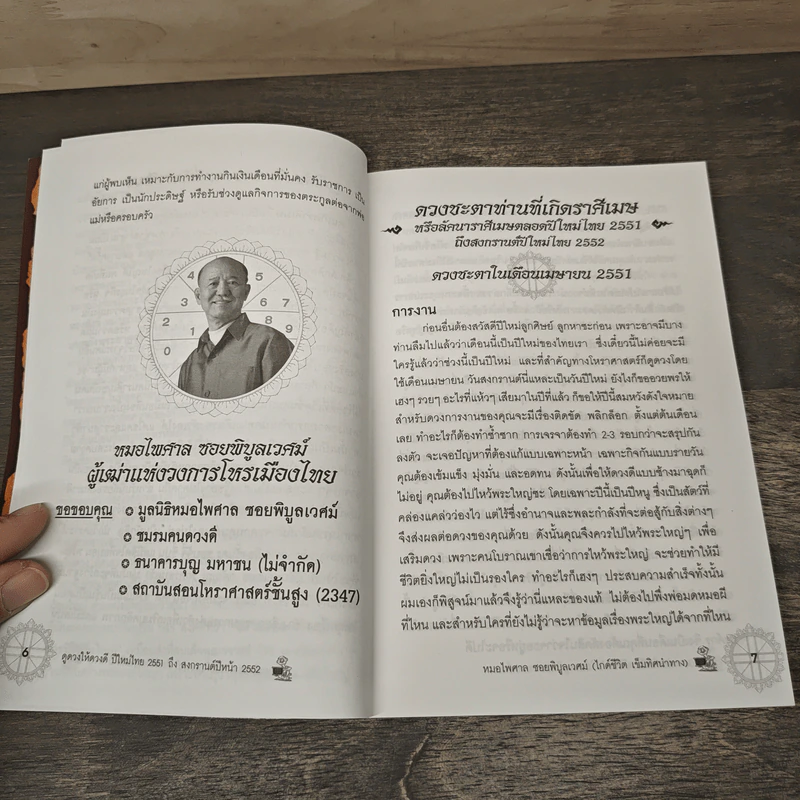 แก่ผู้พบเห็น เหมาะกับการทำงานกินเงินเดือนที่มั่นคง รับราชการ เป็น
อัยการ เป็นนักประดิษฐ์ หรือรับช่วงดูแลกิจการของตระกูลต่อจากพ่อ
แม่หรือครอบครัว
4 5
3 6
2 7
1 8
0 9
หมอไพศาล ซอยพิบูลเวศม์
ผู้เฒ่าแห่งวงการโหรเมืองไทย
ขอขอบคุณ มูลนิธิหมอไพศาล ซอยพิบูลเวศม์
ชมรมคนดวงดี
ธนาคารบุญ มหาชน (ไม่จำกัด)
สถาบันสอนโหราศาสตร์ชั้นสูง (2347)
6 ดูดวงให้ดวงดี ปีใหม่ไทย 2551 ถึง สงกรานต์ปีหน้า 2552
ดวงชะตาท่านที่เกิดราศีเมษ
หรือลัคนาราศีเมษตลอดปีใหม่ไทย 2551
ถึงสงกรานต์ปีใหม่ไทย 2552
ดวงชะตาในเดือนเมษายน 2551
การงาน
ก่อนอื่นต้องสวัสดีปีใหม่ลูกศิษย์ ลูกหาซะก่อน เพราะอาจมีบาง
ท่านลืมไปแล้วว่าเดือนนี้เป็นปีใหม่ของไทยเรา ซึ่งเดี๋ยวนี้ไม่ค่อยจะมี
ใครรู้แล้วว่าช่วงนี้เป็นปีใหม่ และที่สำคัญทางโหราศาสตร์ก็ดูดวงโดย
ใช้เดือนเมษายน วันสงกรานต์นี่แหละเป็นวันปีใหม่ ยังไงก็ขออวยพรให้
เฮงๆ รวยๆ อะไรที่แห้วๆ เสียมาในปีที่แล้ว ก็ขอให้ปีนี้สมหวังดังใจหมาย
สำหรับดวงการงานของคุณจะมีเรื่องติดขัด พลิกล็อก ตั้งแต่ต้นเดือน
เลย ทำอะไรก็ต้องทำซ้ำซาก การเจรจาต้องทำ 2-3 รอบกว่าจะสรุปกัน
ลงตัว จะเจอปัญหาที่ต้องแก้แบบเฉพาะหน้า เฉพาะกิจกันแบบรายวัน
คุณต้องเข้มแข็ง มุ่งมั่น และอดทน ดังนั้นเพื่อให้ดวงดีแบบช้างมาฉุดก็
ไม่อยู่ คุณต้องไปไหว้พระใหญ่ซะ โดยเฉพาะปีนี้เป็นปีหนู ซึ่งเป็นสัตว์ที่
คล่องแคล่วว่องไว แต่ไร้ซึ่งอำนาจและพละกำลังที่จะต่อสู้กับสิ่งต่างๆ
จึงส่งผลต่อดวงของคุณด้วย ดังนั้นคุณจึงควรไปไหว้พระใหญ่ๆ เพื่อ
เสริมดวง เพราะคนโบราณเขาเชื่อว่าการไหว้พระใหญ่ จะช่วยทำให้มี
ชีวิตยิ่งใหญ่ไม่เป็นรองใคร ทำอะไรก็เฮงๆ ประสบความสำเร็จทั้งนั้น
ผมเองก็พิสูจน์มาแล้วจึงรู้ว่านี่แหละของแท้ ไม่ต้องไปพึ่งพ่อมดหมอผี
ที่ไหน และสำหรับใครที่ยังไม่รู้ว่าจะหาข้อมูลเรื่องพระใหญ่ได้จากที่ไหน
หมอไพศาล ซอยพิบูลเวศม์ (ไกด์ชีวิต เข็มทิศนำทาง) 7